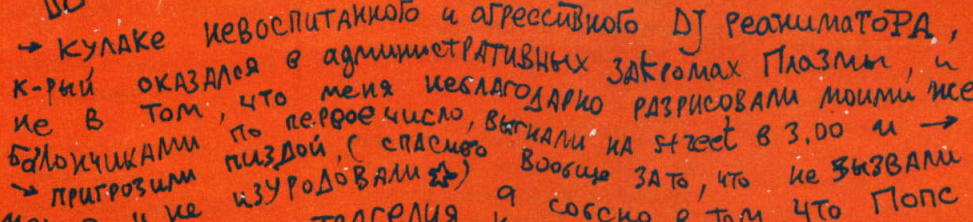 → кулаке невоспитанного и агрессивного DJ реаниматоРА,
к-рый оказался в административных закромах Плазмы, и
не в том, что меня неблагодарно разрисовали моими же
балончиками по первое число, выгнали на street в 3.00 и →
→ пригрозили пиздой, (спасибо вообще зато, что не вызвали
и не изуродовали ☆)
а собсно в том что Попс